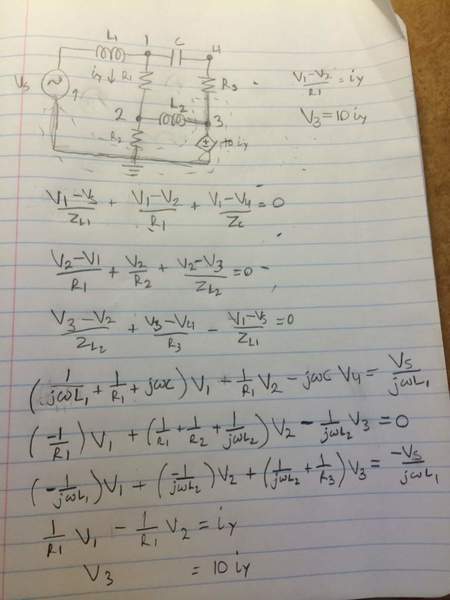 L₁ 1 C 4
iy ↓ R₁ R₃
Vs
2 L₂ 3
R₂ 10 iy
(V₁-V₂)/R₁ = iy
V₃ = 10 iy
(V₁-Vs)/Z_L₁ + (V₁-V₂)/R₁ + (V₁-V₄)/Zc = 0
(V₂-V₁)/R₁ + V₂/R₂ + (V₂-V₃)/Z_L₂ = 0
(V₃-V₂)/Z_L₂ + (V₃-V₄)/R₃ - (V₁-Vs)/Z_L₁ = 0
(1/jωL₁ + 1/R₁ + jωc) V₁ + 1/R₁ V₂ - jωc V₄ = Vs/jωL₁
(-1/R₁) V₁ + (1/R₁ + 1/R₂ + 1/jωL₂) V₂ - 1/jωL₂ V₃ = 0
(-1/jωL₁) V₁ + (-1/jωL₂) V₂ + (1/jωL₂ + 1/R₃) V₃ = -Vs/jωL₁
1/R₁ V₁ - 1/R₁ V₂ = iy
V₃ = 10 iy